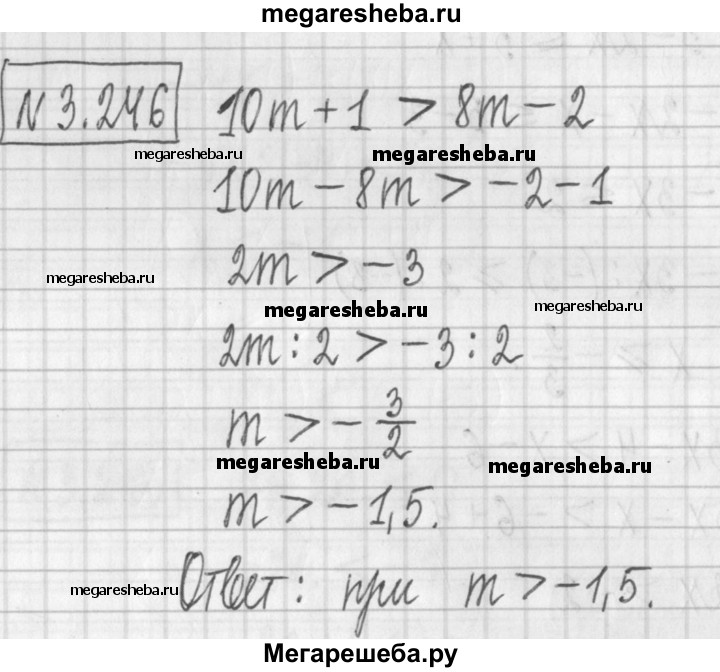 megaresheba.ru
N 3.246 10m + 1 > 8m - 2
megaresheba.ru megaresheba.ru
10m - 8m > -2 - 1
2m > -3
megaresheba.ru
megaresheba.ru megaresheba.ru
2m : 2 > -3 : 2
m > -3/2
megaresheba.ru megaresheba.ru
m > -1,5.
megaresheba.ru Ответ: при m > -1,5.
Мегарешеба.ру